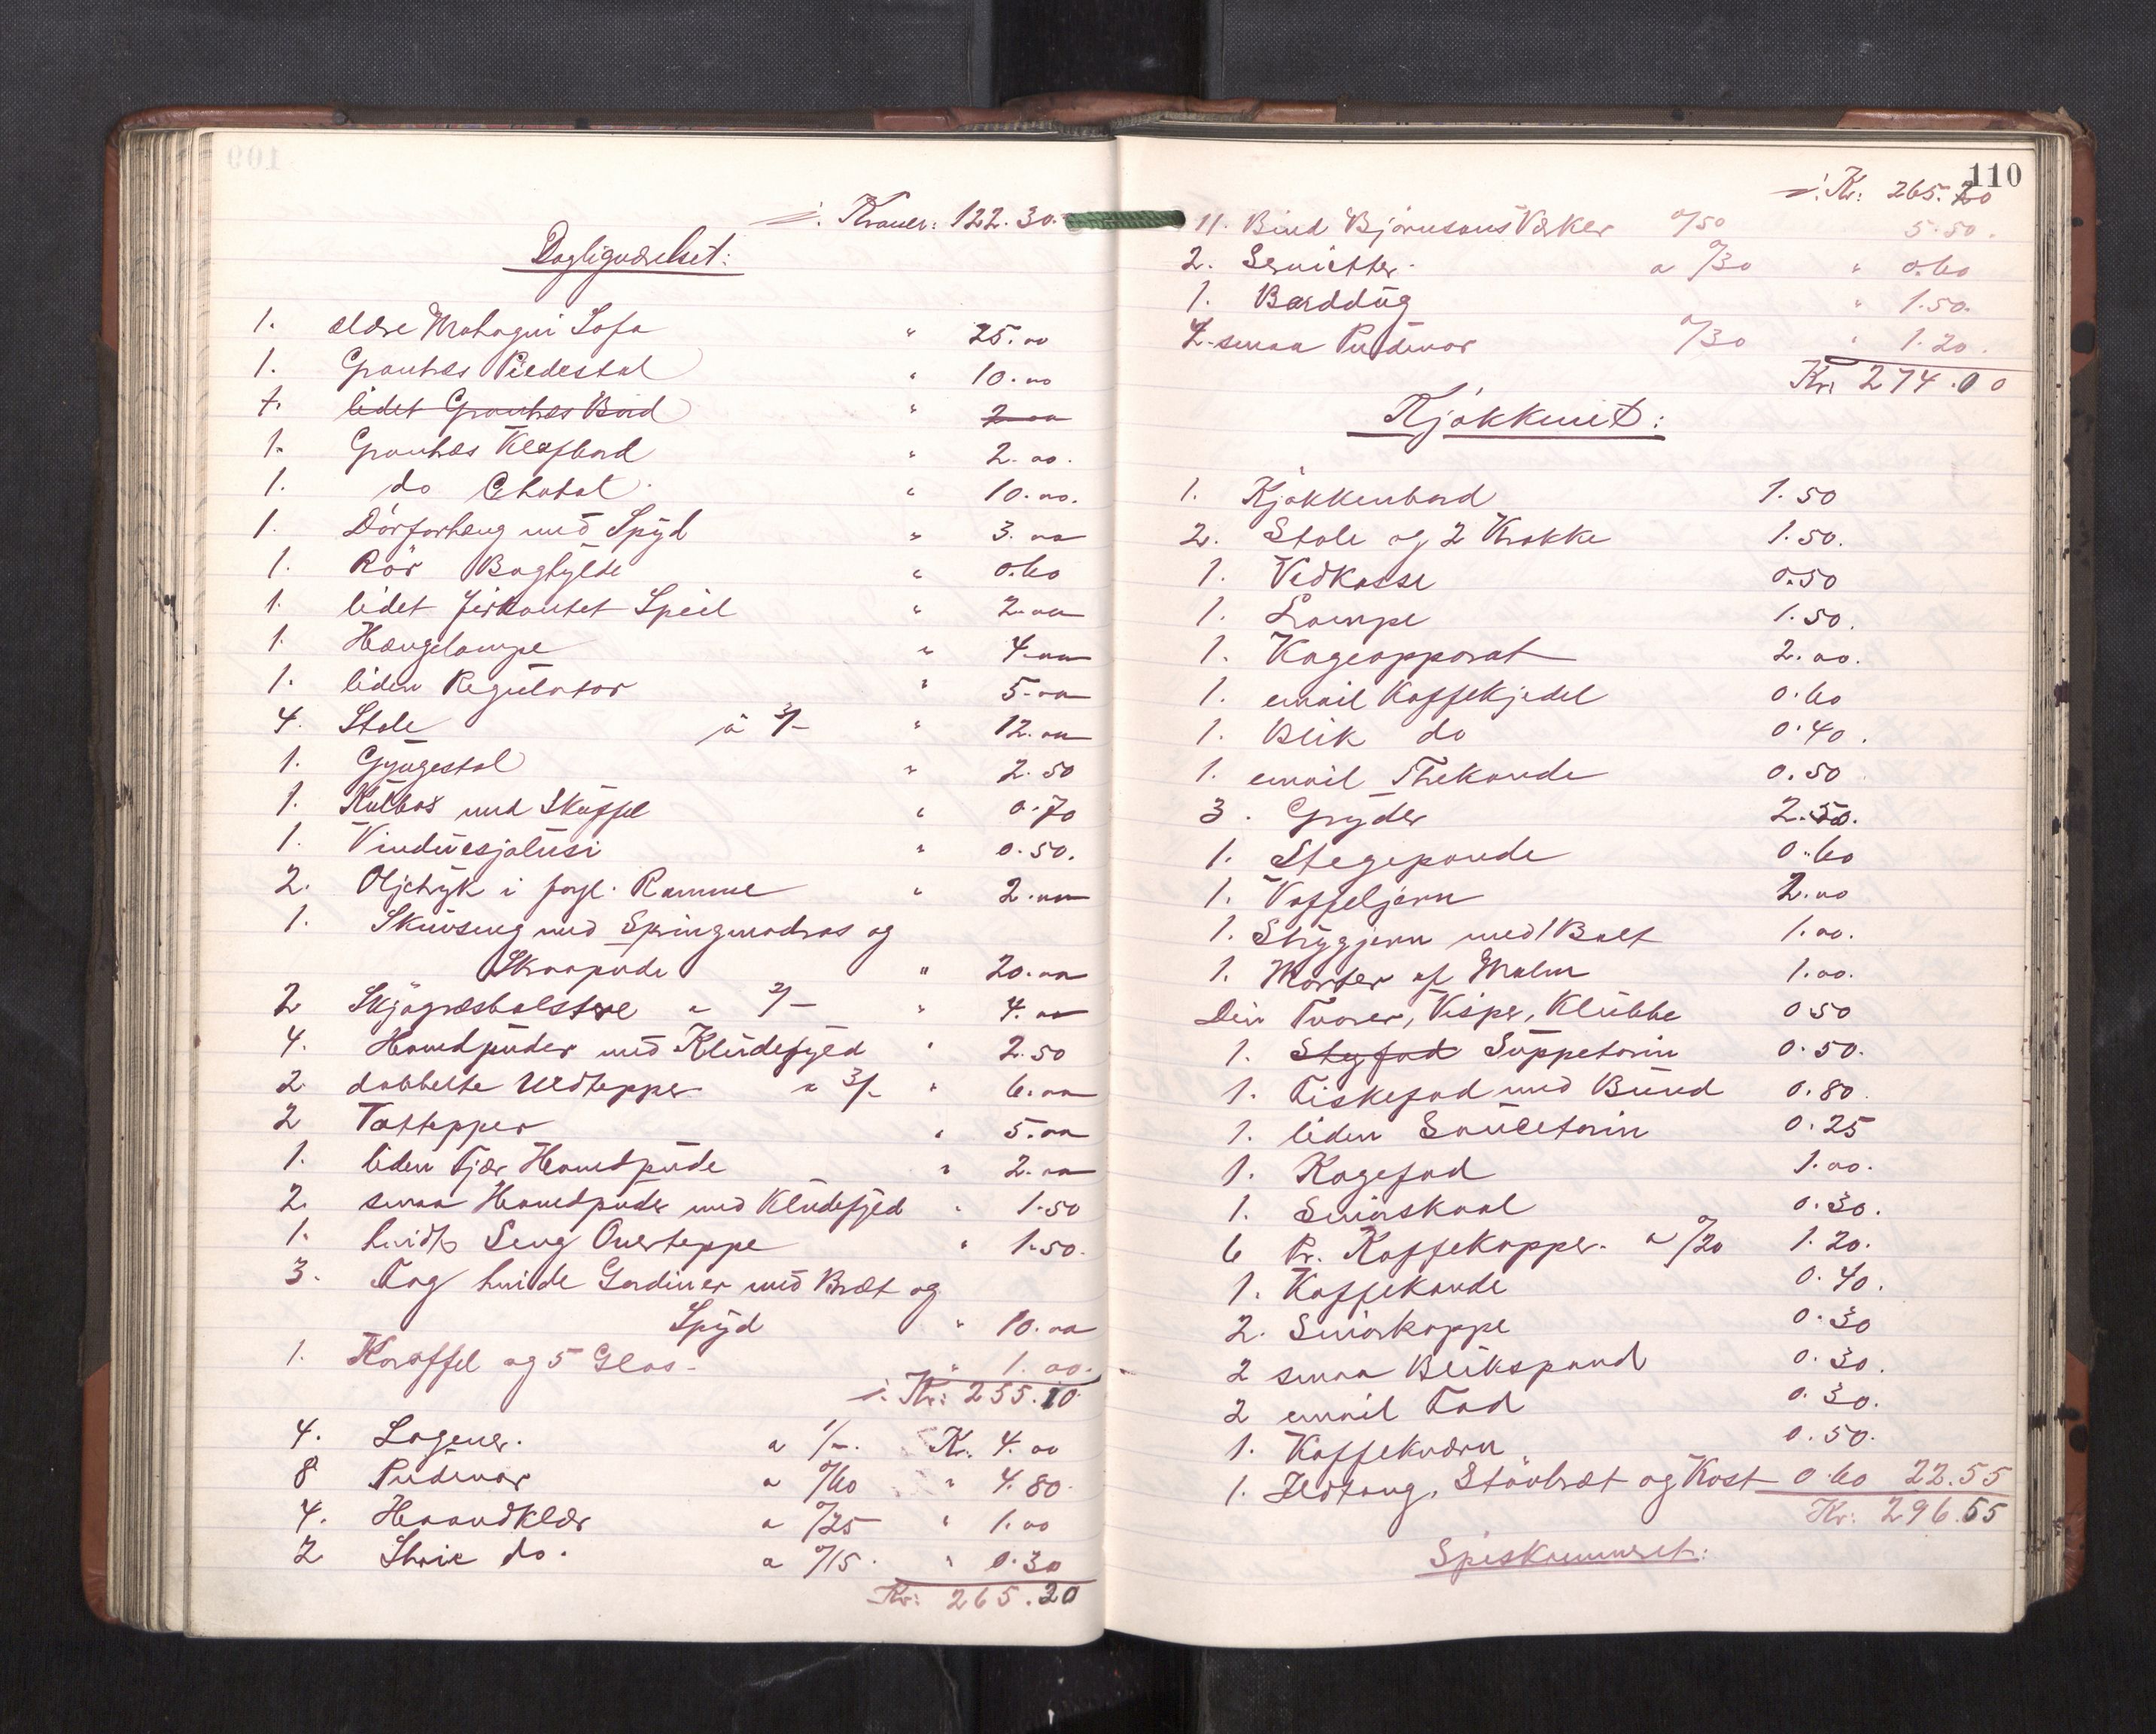 ÷ Kroner: 122.30.
Dagligværelset:
1. ældre Mahogni Sofa " 25.00
1. Grantræs Piedestal " 10.00
1. lidet Grantræs Bord " 2.00
1. Grantræs Klafbord " 2.00.
1. do Chatol " 10.00.
1. Dörforhæng med Spyd " 3.00
1. Rör Boghylde " 0.60
1. lidet firkantet Speil " 2.00
1. Hængelampe " 4.00
1. liden Regulator " 5.00
4. Stole à 3/- " 12.00
1. Gyngestol " 2.50
1. Kulbox med Skuffel " 0.70
1. Vinduesjalusi " 0.50.
2. Oljetryk i forgl. Ramme " 2.00
1. Skuvseng med Springmadras og
Skraapude " 20.00
2 Sjøgræsbolstre a 2/- " 4.00
4. Hovedpuder med Kludefyld " 2.50
2 dobbelte Uldtepper a 3/- " 6.00
2 Vattepper " 5.00
1. liden Fjær Hovedpude " 2.00
2. smaa Hovedpuder med Kludefyld " 1.50
1. hvidt Seng Overteppe " 1.50.
3. Fag hvide Gardiner med Bræt og
Spyd " 10.00
1. Karaffel og 5 Glas " 1.00.
÷ Kr: 255.10
4. Lagener. a 1/-. Kr. 4.00
8 Pudevar a 0/60 " 4.80
4. Haandklær a 0/25 " 1.00
2 Strie do. a 0/15. " 0.30
Kr: 265.20
110
÷ Kr: 265.20
11. Bind Björnsons Værker 0/50 5.50.
2. Servietter. a 0/30 " 0.60
1. Borddug " 1.50.
4. smaa Pudevar 0/30 " 1.20.
Kr: 274.00
Kjøkkenet:
1. Kjøkkenbord 1.50
2. Stole og 2 Krakke 1.50.
1. Vedkasse 0.50
1. Lampe 1.50.
1. Kogeapparat 2.00.
1. email Kaffekjedel 0.60
1. Blik do 0.40.
1. email Thekande 0.50
3. Gryder 2.50.
1. Stegepande 0.60
1. Vaffeljern 2.00
1. Strygjern med 1 Bolt 1.00.
1. Morter af Malm 1.00.
Div Tvarer, Visper, Klubbe 0.50
1. Stegfad Suppeterin 0.50.
1. Fiskefad med Bund 0.80.
1. liden Sauceterin 0.25
1. Kagefad 1.00.
1. Smörskaal 0.30.
6 Pr. Kaffekopper. a 0/20 1.20.
1. Kaffekande 0.40.
2. Smörkoppe 0.30
2 smaa Blikspand 0.30.
2 email Fad 0.30.
1. Kaffekværn 0.50.
1. Ildtang, Stövbræt og Kost 0.60 22.55
Kr: 296.55
Spiskammeret: